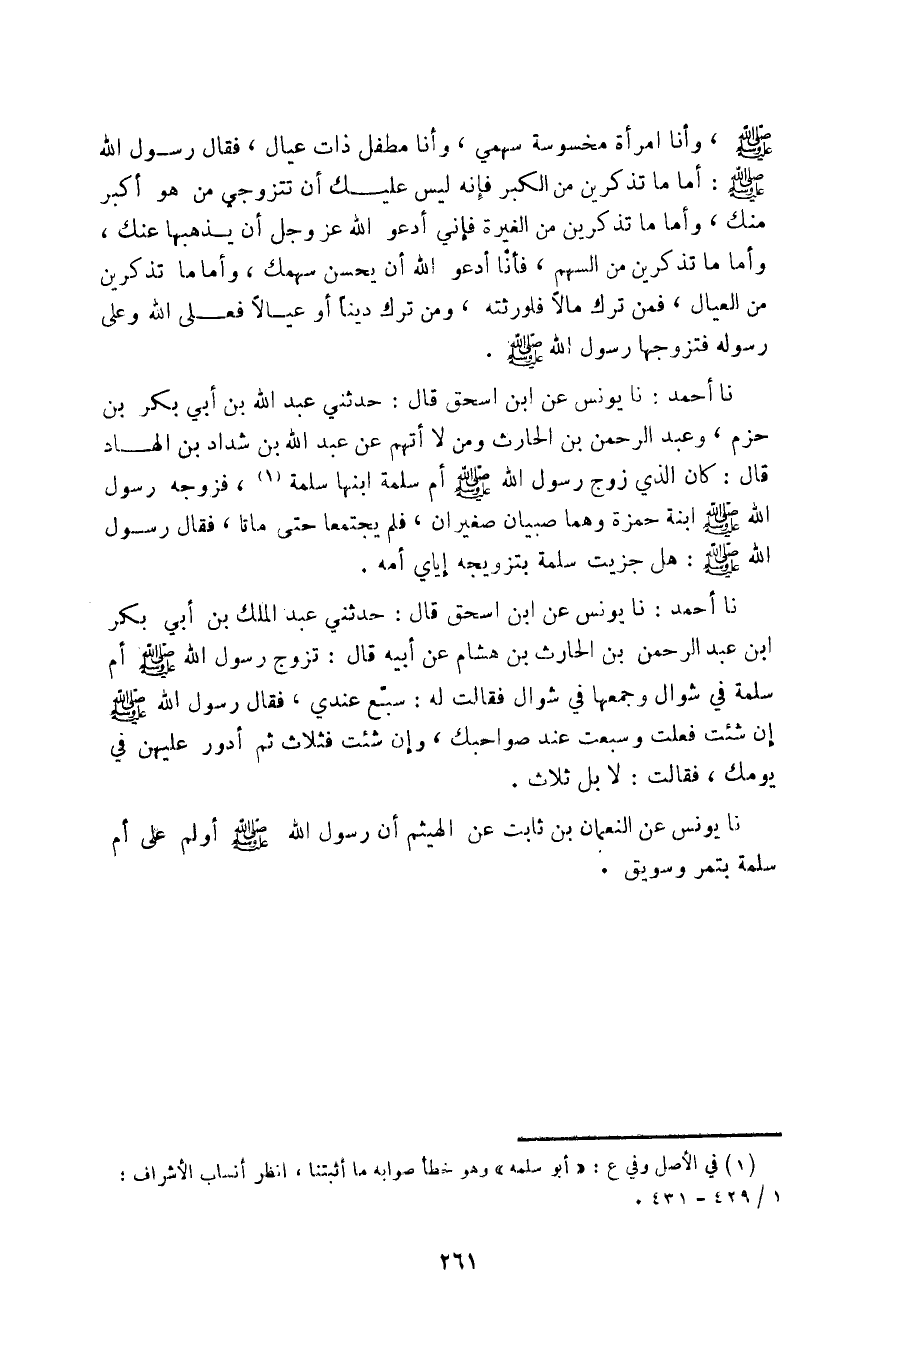 ﷺ ، وأنا امرأة مخسوسة سهمي ، وأنا مطفل ذات عيال ، فقال رسـول الله
ﷺ : أما ما تذكرين من الكبر فإنه ليس عليــك أن تتزوجي من هو أكبر
منك ، وأما ما تذكرين من الغيرة فإني أدعو الله عز وجل أن يـذهبها عنك ،
وأما ما تذكرين من السهم ، فأنّا أدعو الله أن يحسن سهمك ، وأما ما تذكرين
من العيال ، فمن ترك مالاً فلورثته ، ومن ترك ديناً أو عيـالاً فعــلى الله وعلى
رسوله فتزوجها رسول الله ﷺ .
نا أحمد : نا يونس عن ابن اسحق قال : حدثني عبد الله بن أبي بكر بن
حزم ، وعبد الرحمن بن الحارث ومن لا أتهم عن عبد الله بن شداد بن الهــاد
قال : كان الذي زوج رسول الله ﷺ أم سلمة ابنها سلمة (١) ، فزوجه رسول
الله ﷺ ابنة حمزة وهما صبيان صغيران ، فلم يجتمعا حتى ماتا ، فقال رسـول
الله ﷺ : هل جزيت سلمة بتزويجه إياي أمه .
نا أحمد : نا يونس عن ابن اسحق قال : حدثني عبد الملك بن أبي بكر
ابن عبد الرحمن بن الحارث بن هشام عن أبيه قال : تزوج رسول الله ﷺ أم
سلمة في شوال وجمعها في شوال فقالت له : سبّع عندي ، فقال رسول الله ﷺ
إن شئت فعلت وسبعت عند صواحبك ، وإن شئت فثلاث ثم أدور عليهن في
يومك ، فقالت : لا بل ثلاث .
نا يونس عن النعمان بن ثابت عن الهيثم أن رسول الله ﷺ أولم على أم
سلمة بتمر وسويق .
(١) في الأصل وفي ع : « أبو سلمه » وهو خطأ صوابه ما أثبتنا ، انظر أنساب الأشراف :
١ / ٤٢٩ – ٤٣١ .
٢٦١